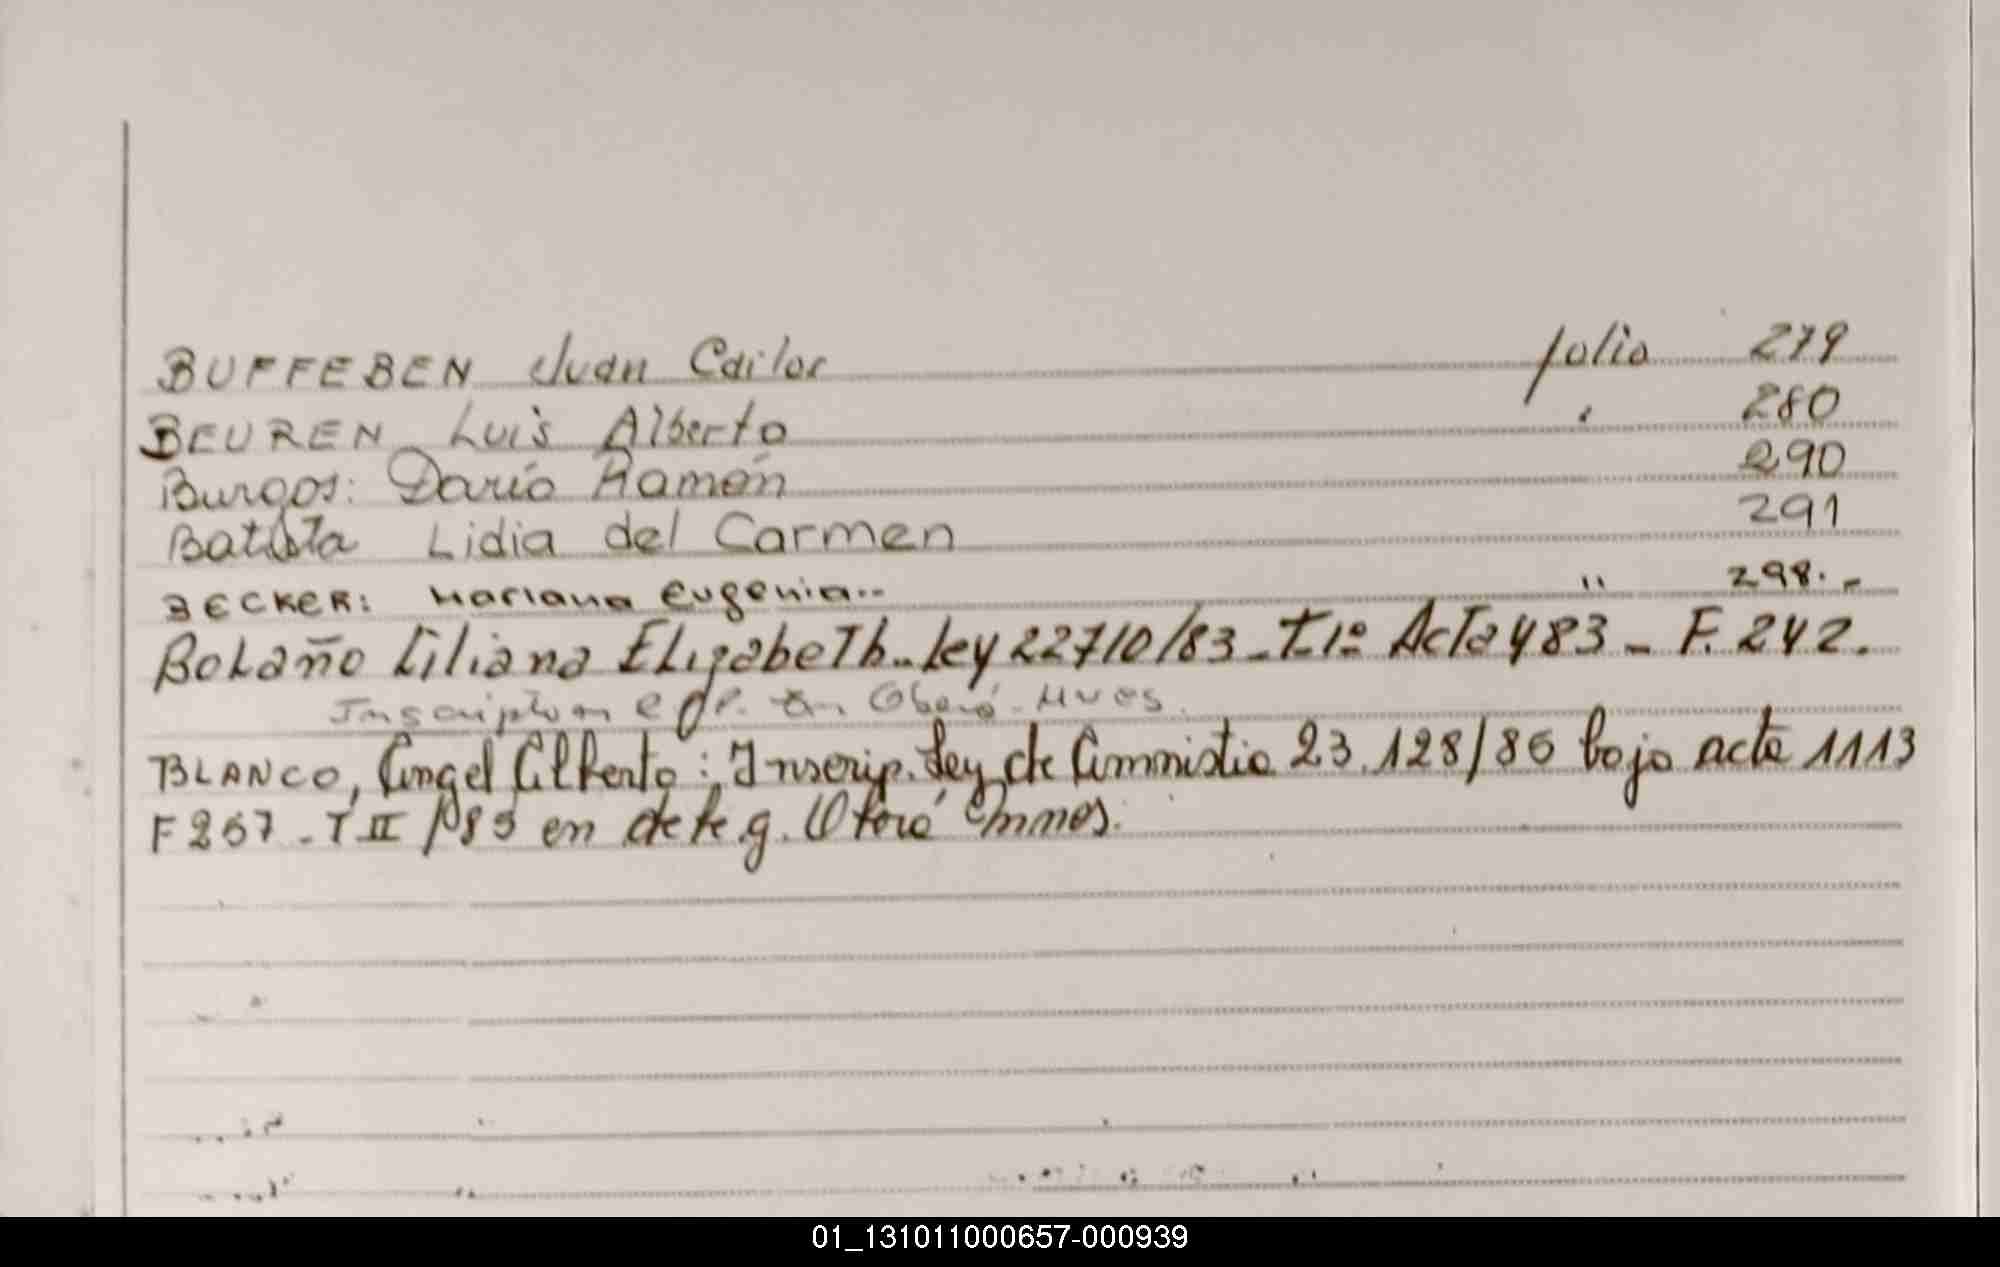 BUFFEBEN Juan Carlos folio 279
BEUREN Luis Alberto " 280
Burgos: Darío Ramón 290
Batista Lidia del Carmen 291
BECKER: Mariana Eugenia.. " 298.-
Bolaño Liliana Elizabeth.. Ley 22710/83 - T-1º Acta 483 - F. 242.
Inscription en Oberá - Mnes.
BLANCO, Angel Alberto: Inscrip. Ley de Amnistia 23.128/86 bajo acta 1113
F 267 - T II /85 en deleg. Oberá Mnes.
01_131011000657-000939